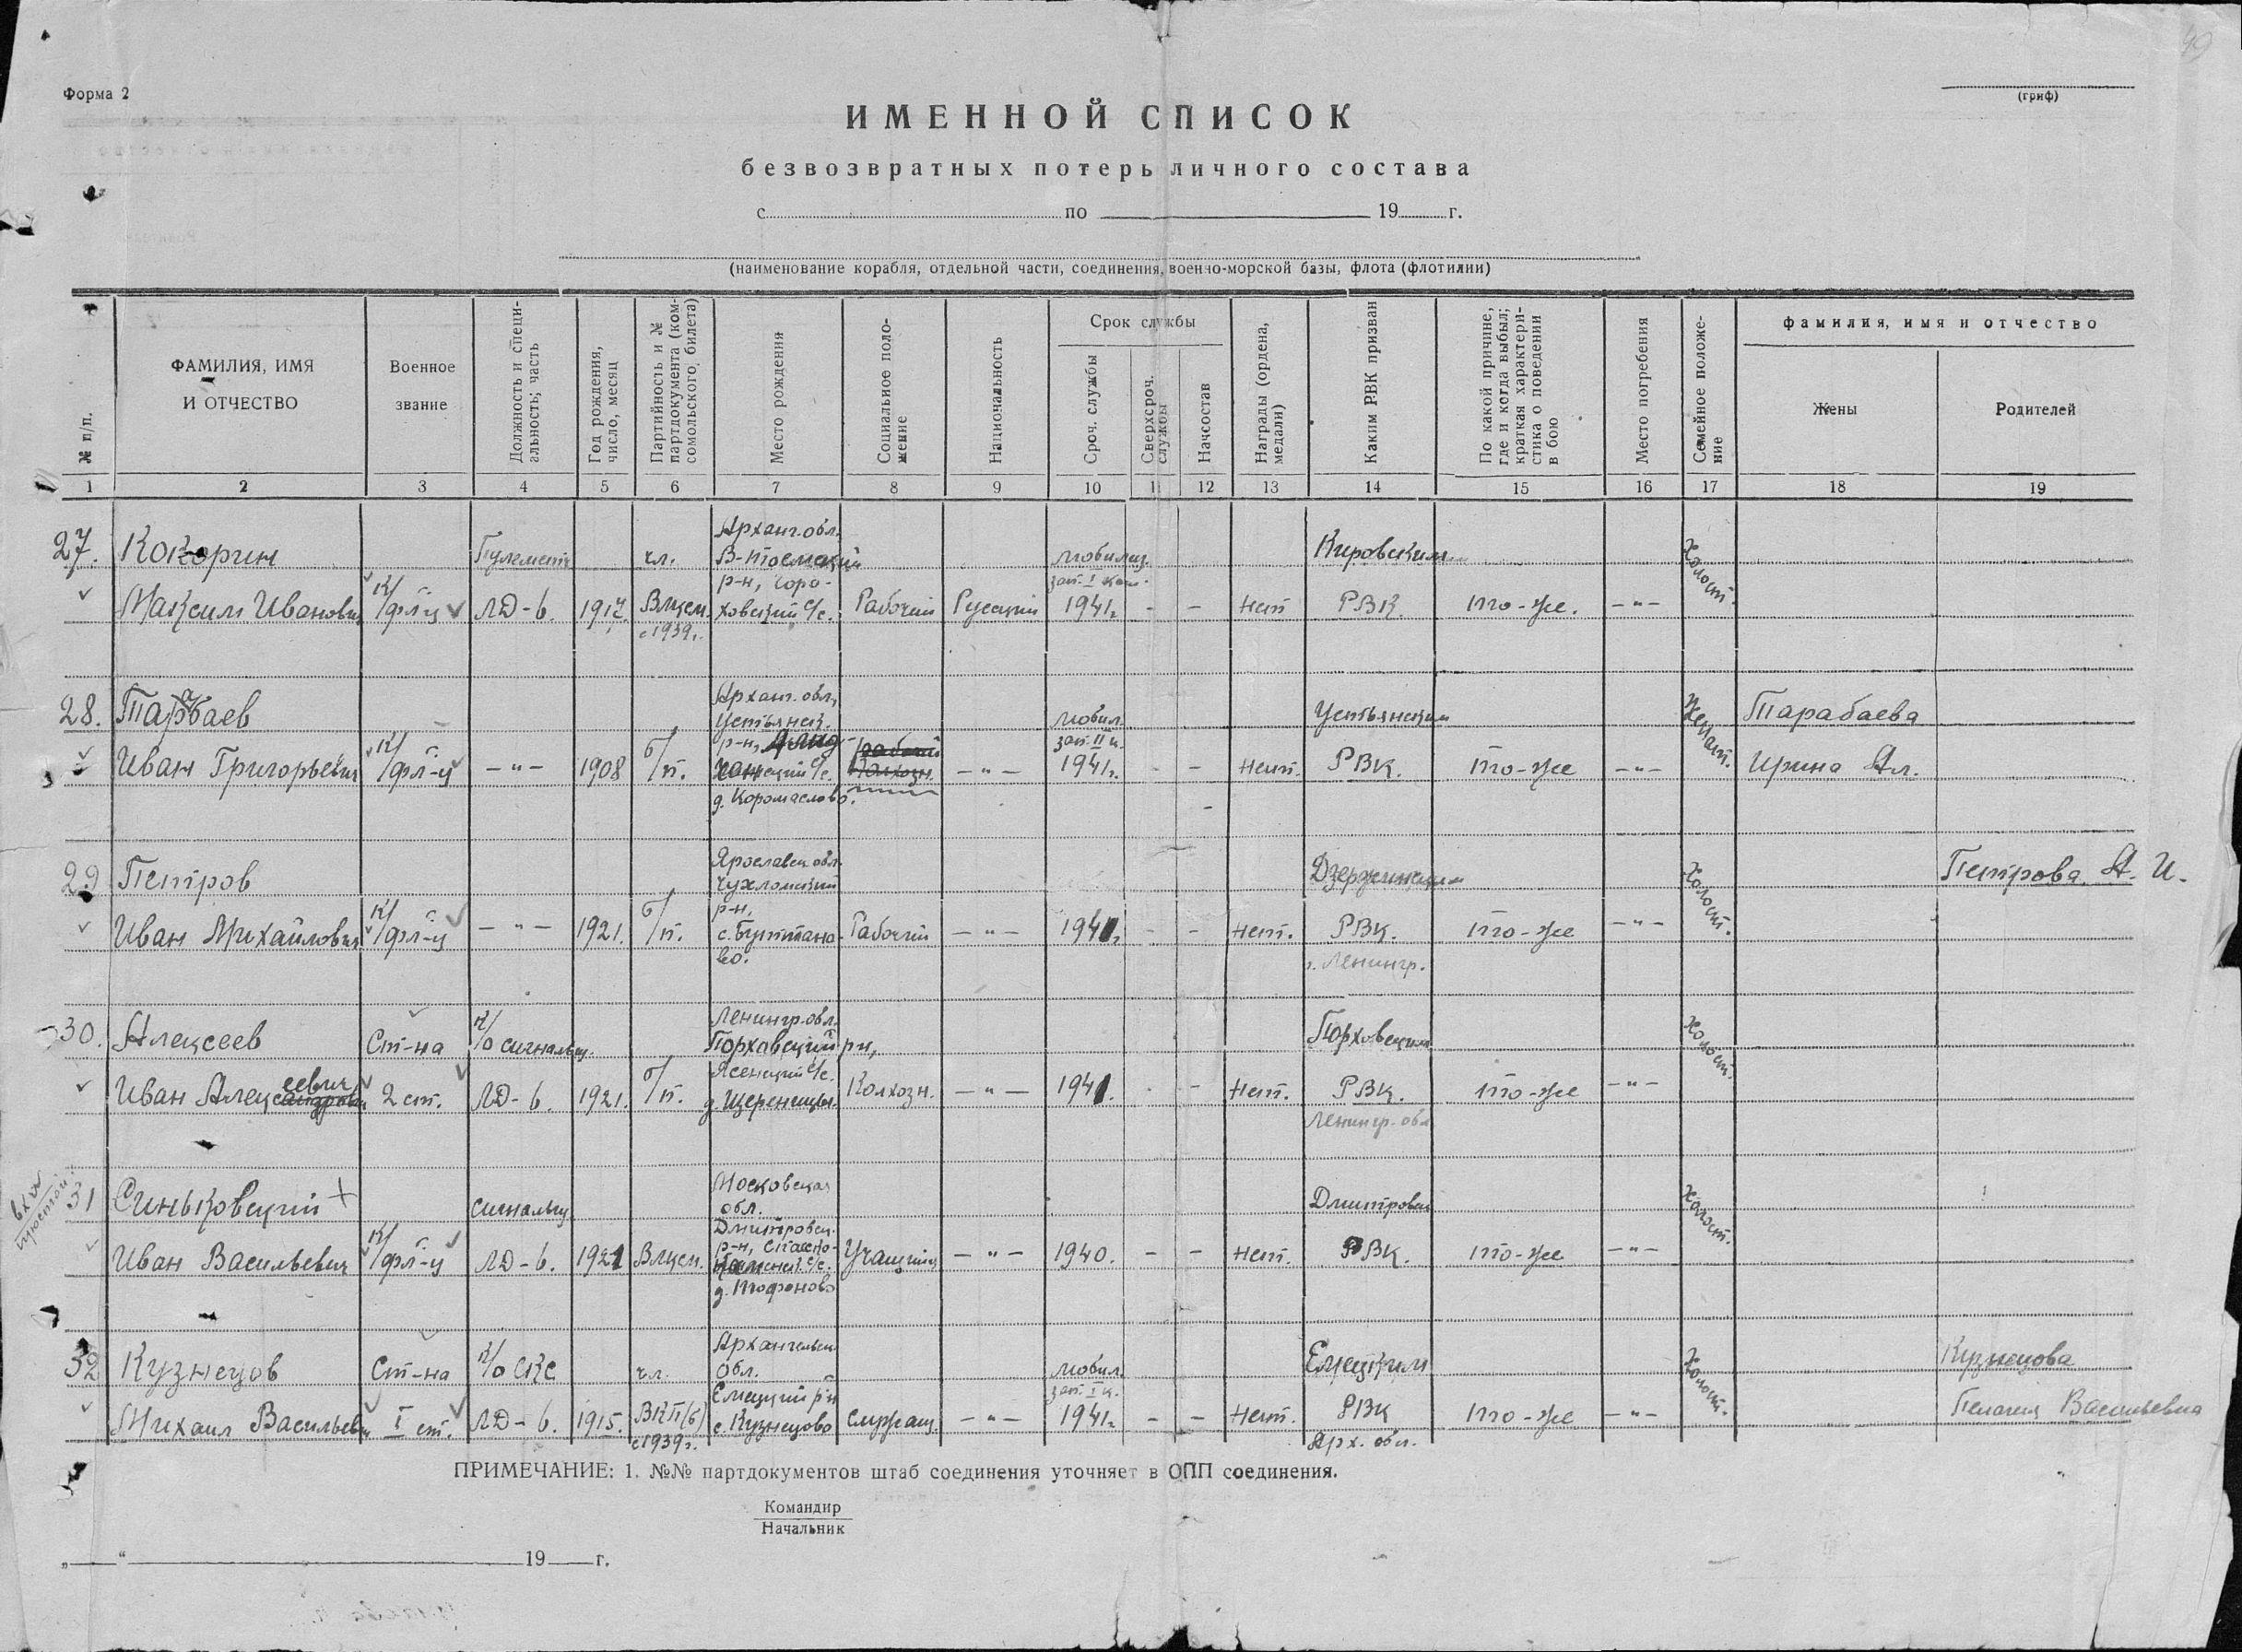 49
Форма 2
(гриф)
ИМЕННОЙ СПИСОК
безвозвратных потерь личного состава
с по 19 г.
(наименование корабля, отдельной части, соединения, военно-морской базы, флота (флотилии)
№ п/п.
ФАМИЛИЯ, ИМЯ
И ОТЧЕСТВО
Военное
звание
Должность и специ-
альность; часть
Год рождения,
число, месяц
Партийность и №
партдокумента (ком-
сомольского, билета)
Место рождения
Социальное поло-
жение
Национальность
Срок службы
Сроч. службы
Сверхсроч.
службы
Начсостав
Награды (ордена,
медали)
Каким РВК призван
По какой причине,
где и когда выбыл;
краткая характери-
стика о поведении
в бою
Место погребения
Семейное положе-
ние
фамилия, имя и отчество
Жены
Родителей
1 2 3 4 5 6 7 8 9 10 11 12 13 14 15 16 17 18 19
27. Кокорин
Максим Иванович
К/
/фл-ц
Пулеметч
ЛД-6.
1917.
чл.
Влксм
с 1939г.
Арханг. обл.
В-Тоемский
р-н, Горо-
ховский с/с.
Рабочий
Русский
мобилиз.
зап. I кат.
1941г.
- -
нет
Кировским
РВК.
то-же.
-"-
Холост.
28. Тарабаев
Иван Григорьевич
К/
/фл-ц
-"-
1908
б/
/п.
Арханг. обл,
Устьянск.
р-н,
с/с.
д. Коромаслово.
рабочий
Колхозн.
-"-
мобил.
зап. II к.
1941г.
- -
Нет.
Устьянским
РВК.
то-же
-"-
Женат.
Тарабаева
Ирина Ал.
29 Петров
Иван Михайлович
К/
/фл-ц
-"-
1921.
б/
/п.
Ярославск обл.
Чухломский
р-н.
во.
Рабочий
-"-
1941г
- -
Нет.
Дзержинским
РВК.
г. Ленингр.
то-же
-"-
Холост.
Петрова. А. И.
30. Алексеев
Иван Алексеевич
Ст-на
2 ст.
К/
/о сигнальщ.
ЛД-6.
1921.
б/
/п.
Ленингр. обл.
Порховский рн,
Ясенский с/с.
д. Щеренецы.
Колхозн.
-"-
1941.
- -
Нет.
Порховским
РВК.
Ленингр. обл
то-же
-"-
Холост.
31 Синьковский +
Иван Васильевич
К/
/фл-ц
сигнальщ
ЛД-6.
1921
Влксм.
Московская
обл.
Дмитровск.
р-н,
с/с.
д.
Учащийся
-"-
1940.
- -
Нет.
Дмитровск
РВК.
то-же
-"-
Холост.
32 Кузнецов
Михаил Васильевич
Ст-на
I ст.
К/о СКС
ЛД-6.
1915.
чл.
ВКП(б)
с 1939г.
Архангельск
обл.
Емецкий р-н
с. Кузнецово
Служащ.
-"-
мобил.
зап. I к.
1941г.
- -
Нет.
Емецким
РВК
Арх. обл.
то-же
-"-
Холост.
Кузнецова
Пелагея Васильевна
ПРИМЕЧАНИЕ: 1. №№ партдокументов штаб соединения уточняет в ОПП соединения.
Командир
Начальник
„ “ 19 г.